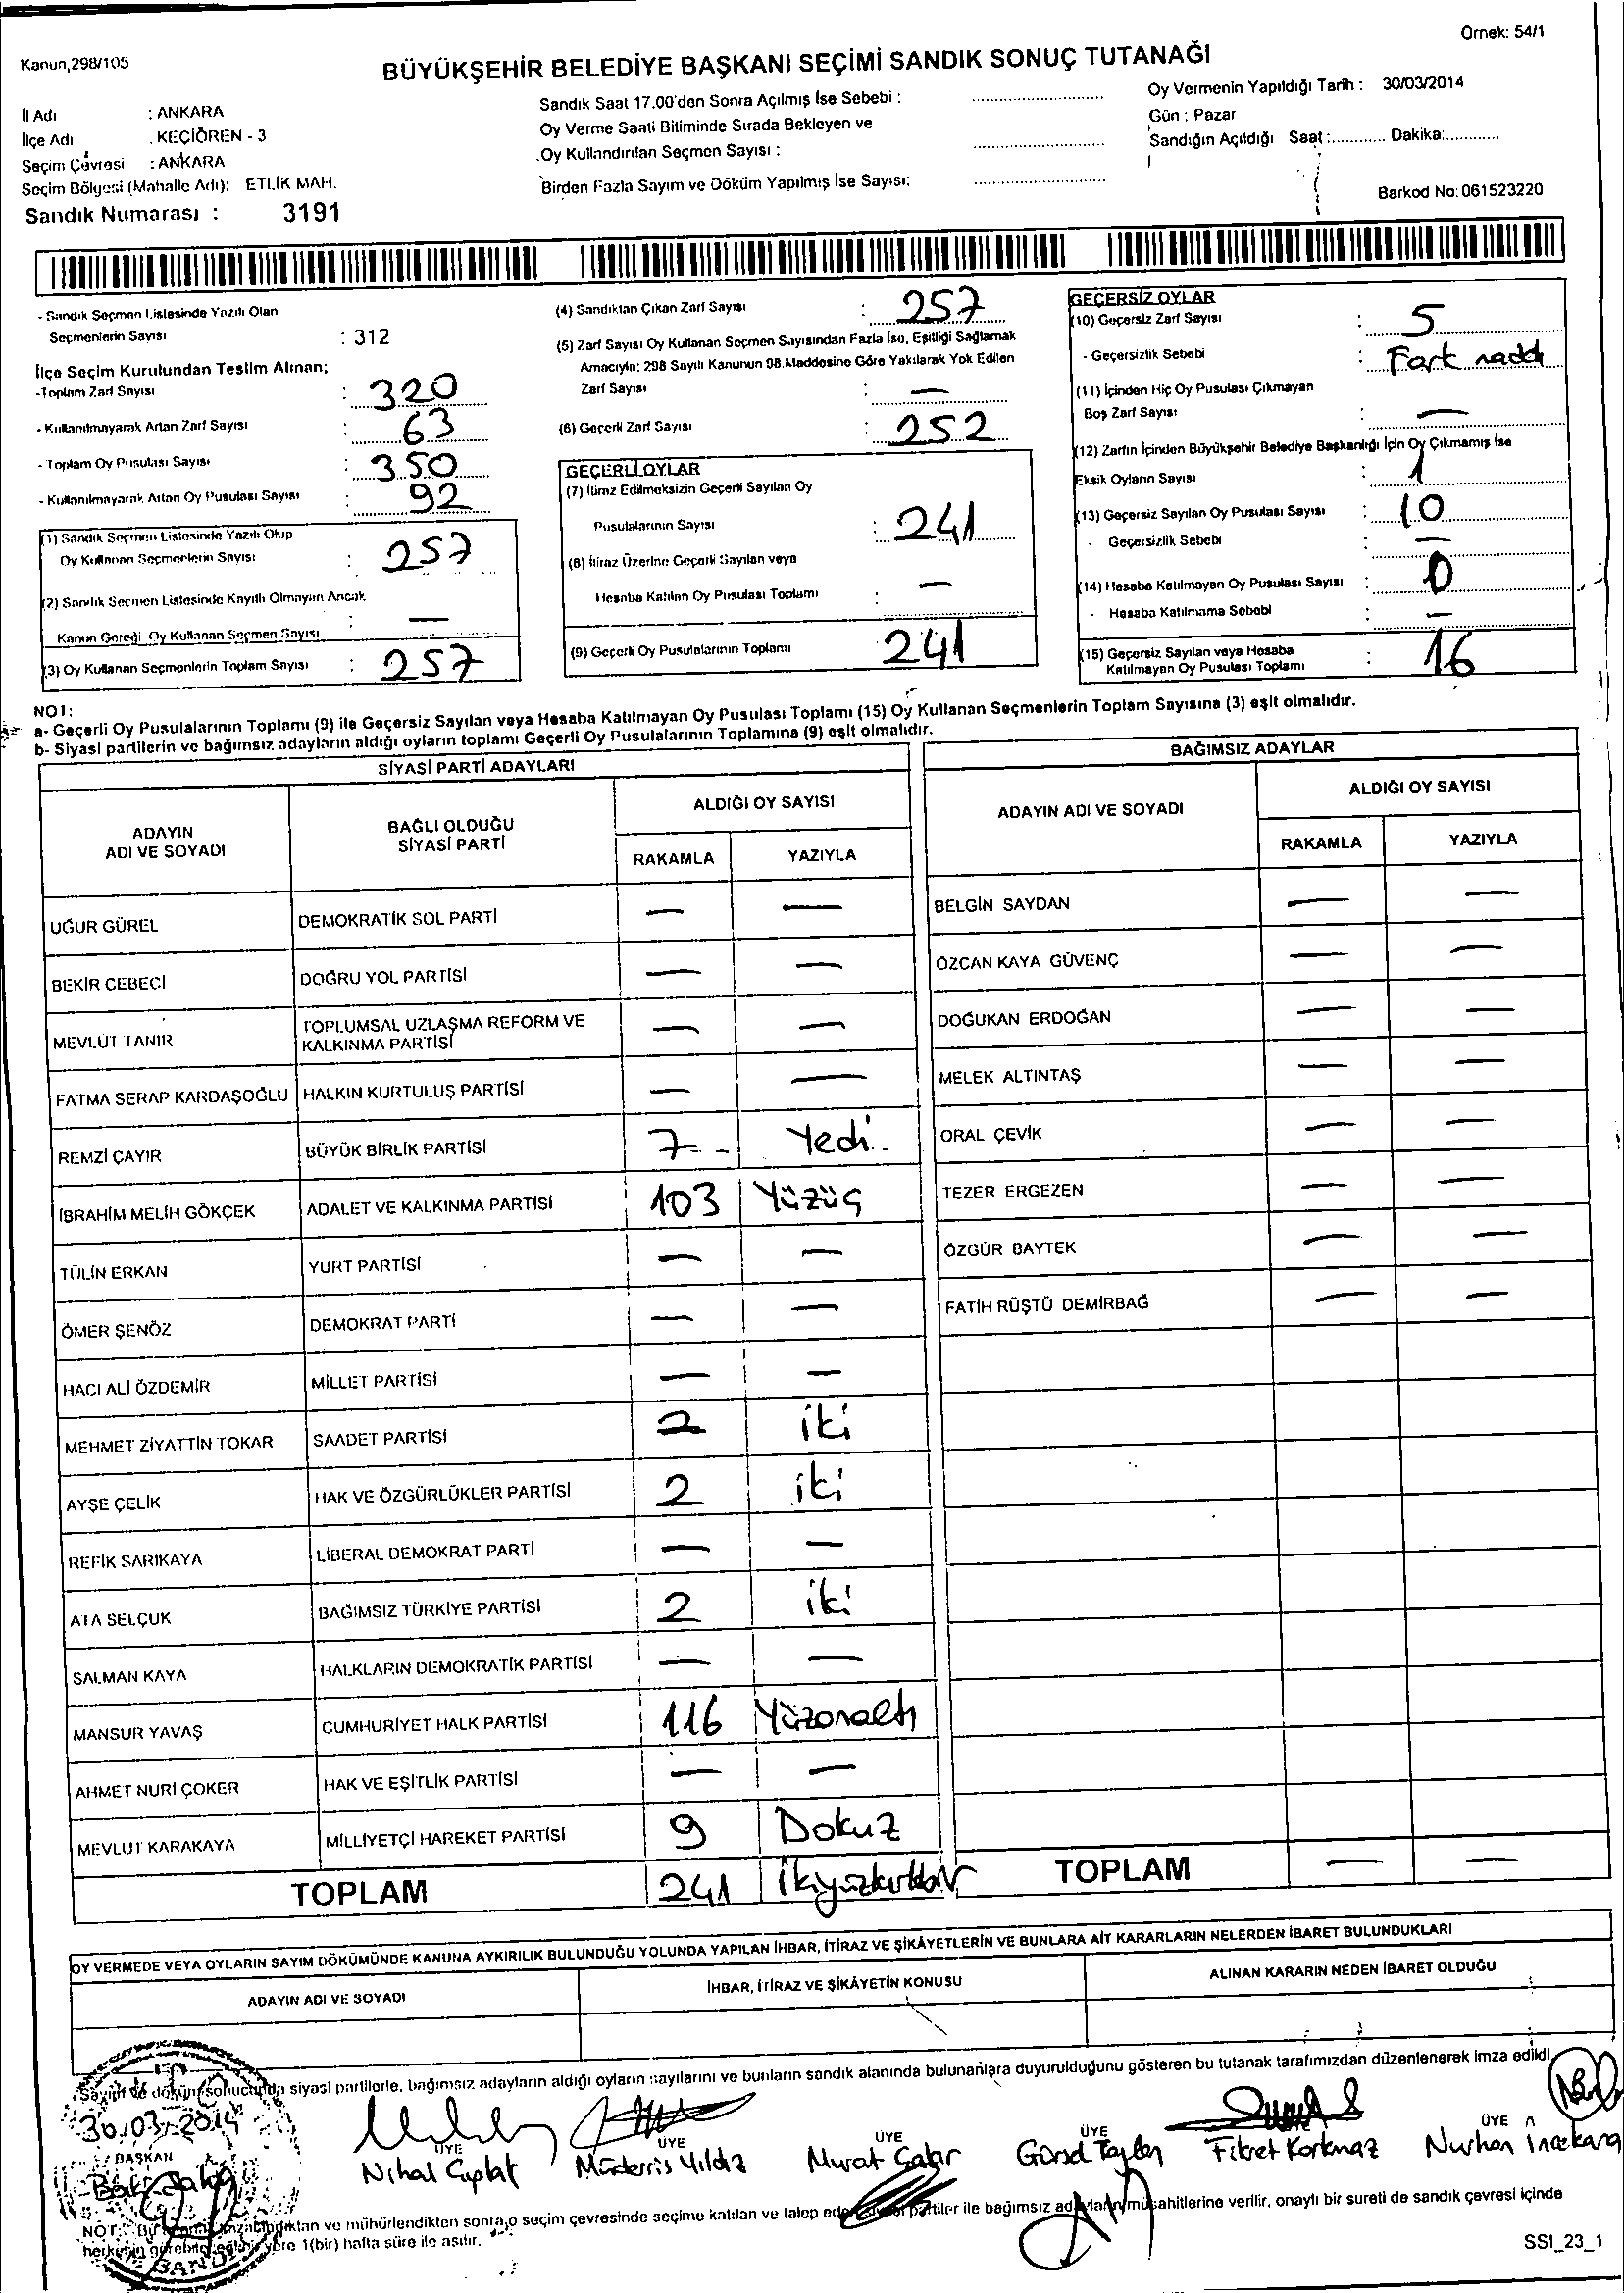 Örnek: 54/1
Kanun,298/105
BÜYÜKŞEHİR BELEDİYE BAŞKANI SEÇİMİ SANDIK SONUÇ TUTANAĞI
İl Adı : ANKARA
İlçe Adı : KEÇİÖREN - 3
Seçim Çevresi : ANKARA
Seçim Bölgesi (Mahalle Adı): ETLİK MAH.
Sandık Numarası : 3191
Sandık Saat 17.00'den Sonra Açılmış İse Sebebi :
Oy Verme Saati Bitiminde Sırada Bekleyen ve
Oy Kullandırılan Seçmen Sayısı :
Birden Fazla Sayım ve Döküm Yapılmış İse Sayısı:
Oy Vermenin Yapıldığı Tarih : 30/03/2014
Gün : Pazar
Sandığın Açıldığı Saat :............ Dakika:............
Barkod No: 061523220
- Sandık Seçmen Listesinde Yazılı Olan
Seçmenlerin Sayısı : 312
İlçe Seçim Kurulundan Teslim Alınan;
-Toplam Zarf Sayısı : 320
- Kullanılmayarak Artan Zarf Sayısı : 63
- Toplam Oy Pusulası Sayısı : 350
- Kullanılmayarak Artan Oy Pusulası Sayısı : 92
(1) Sandık Seçmen Listesinde Yazılı Olup
Oy Kullanan Seçmenlerin Sayısı : 257
(2) Sandık Seçmen Listesinde Kayıtlı Olmayan Ancak
Kanun Gereği Oy Kullanan Seçmen Sayısı : —
(3) Oy Kullanan Seçmenlerin Toplam Sayısı : 257
(4) Sandıktan Çıkan Zarf Sayısı : 257
(5) Zarf Sayısı Oy Kullanan Seçmen Sayısından Fazla İse, Eşitliği Sağlamak
Amacıyla: 298 Sayılı Kanunun 98.Maddesine Göre Yakılarak Yok Edilen
Zarf Sayısı : —
(6) Geçerli Zarf Sayısı : 252
GEÇERLİ OYLAR
(7) İtiraz Edilmeksizin Geçerli Sayılan Oy
Pusulalarının Sayısı : 241
(8) İtiraz Üzerine Geçerli Sayılan veya
Hesaba Katılan Oy Pusulası Toplamı : —
(9) Geçerli Oy Pusulalarının Toplamı : 241
GEÇERSİZ OYLAR
(10) Geçersiz Zarf Sayısı : 5
- Geçersizlik Sebebi : Fark
(11) İçinden Hiç Oy Pusulası Çıkmayan
Boş Zarf Sayısı : —
(12) Zarfın İçinden Büyükşehir Belediye Başkanlığı İçin Oy Çıkmamış İse
Eksik Oyların Sayısı : 1
(13) Geçersiz Sayılan Oy Pusulası Sayısı : 10
- Geçersizlik Sebebi : —
(14) Hesaba Katılmayan Oy Pusulası Sayısı : 0
- Hesaba Katılmama Sebebi : —
(15) Geçersiz Sayılan veya Hesaba
Katılmayan Oy Pusulası Toplamı : 16
NOT:
a- Geçerli Oy Pusulalarının Toplamı (9) ile Geçersiz Sayılan veya Hesaba Katılmayan Oy Pusulası Toplamı (15) Oy Kullanan Seçmenlerin Toplam Sayısına (3) eşit olmalıdır.
b- Siyasi partilerin ve bağımsız adayların aldığı oyların toplamı Geçerli Oy Pusulalarının Toplamına (9) eşit olmalıdır.
SİYASİ PARTİ ADAYLARI
ADAYIN ADI VE SOYADI BAĞLI OLDUĞU SİYASİ PARTİ ALDIĞI OY SAYISI
RAKAMLA YAZIYLA
UĞUR GÜREL DEMOKRATİK SOL PARTİ — —
BEKİR CEBECİ DOĞRU YOL PARTİSİ — —
MEVLÜT TANIR TOPLUMSAL UZLAŞMA REFORM VE KALKINMA PARTİSİ — —
FATMA SERAP KARDAŞOĞLU HALKIN KURTULUŞ PARTİSİ — —
REMZİ ÇAYIR BÜYÜK BİRLİK PARTİSİ 7 Yedi
İBRAHİM MELİH GÖKÇEK ADALET VE KALKINMA PARTİSİ 103 Yüzüç
TÜLİN ERKAN YURT PARTİSİ — —
ÖMER ŞENÖZ DEMOKRAT PARTİ — —
HACI ALİ ÖZDEMİR MİLLET PARTİSİ — —
MEHMET ZİYATTİN TOKAR SAADET PARTİSİ 2 iki
AYŞE ÇELİK HAK VE ÖZGÜRLÜKLER PARTİSİ 2 iki
REFİK SARIKAYA LİBERAL DEMOKRAT PARTİ — —
ATA SELÇUK BAĞIMSIZ TÜRKİYE PARTİSİ 2 iki
SALMAN KAYA HALKLARIN DEMOKRATİK PARTİSİ — —
MANSUR YAVAŞ CUMHURİYET HALK PARTİSİ 116 Yüzonaltı
AHMET NURİ ÇOKER HAK VE EŞİTLİK PARTİSİ — —
MEVLÜT KARAKAYA MİLLİYETÇİ HAREKET PARTİSİ 9 Dokuz
TOPLAM 241 İkiyüzkırkbir
BAĞIMSIZ ADAYLAR
ADAYIN ADI VE SOYADI ALDIĞI OY SAYISI
RAKAMLA YAZIYLA
BELGİN SAYDAN — —
ÖZCAN KAYA GÜVENÇ — —
DOĞUKAN ERDOĞAN — —
MELEK ALTINTAŞ — —
ORAL ÇEVİK — —
TEZER ERGEZEN — —
ÖZGÜR BAYTEK — —
FATİH RÜŞTÜ DEMİRBAĞ — —
TOPLAM — —
OY VERMEDE VEYA OYLARIN SAYIM DÖKÜMÜNDE KANUNA AYKIRILIK BULUNDUĞU YOLUNDA YAPILAN İHBAR, İTİRAZ VE ŞİKÂYETLERİN VE BUNLARA AİT KARARLARIN NELERDEN İBARET BULUNDUKLARI
ADAYIN ADI VE SOYADI İHBAR, İTİRAZ VE ŞİKÂYETİN KONUSU ALINAN KARARIN NEDEN İBARET OLDUĞU
Sayım ve döküm sonucunda siyasi partilerle, bağımsız adayların aldığı oyların sayılarını ve bunların sandık alanında bulunanlara duyurulduğunu gösteren bu tutanak tarafımızdan düzenlenerek imza edildi.
30/03/2014
BAŞKAN ÜYE ÜYE ÜYE ÜYE ÜYE
Nihal Müderris Yıldız Murat Gürsel Fikret Korkmaz Nurhan
NOT: Bu ve mühürlendikten sonra, o seçim çevresinde seçime katılan ve talep eden siyasi partiler ile bağımsız adayların müşahitlerine verilir, onaylı bir sureti de sandık çevresi içinde
herkesin görebileceği bir yere 1(bir) hafta süre ile asılır.
SSI_23_1